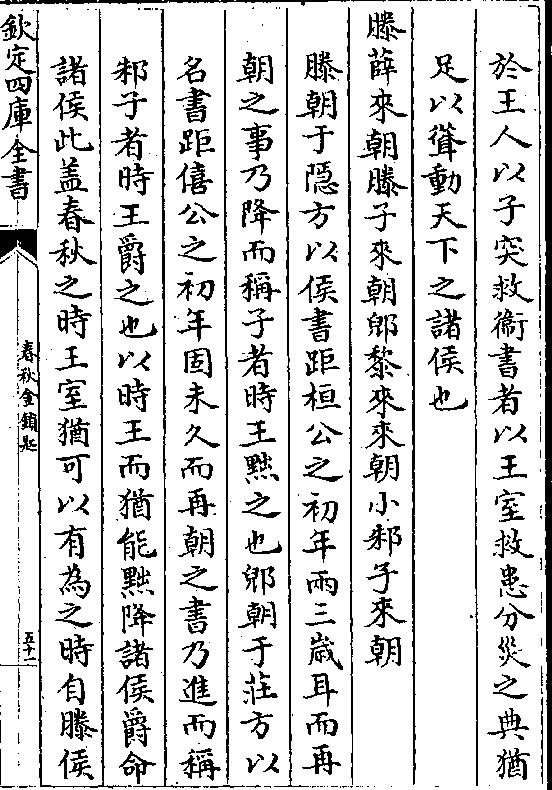 於王人以子突救衞書者以王室救患分災之典猶
足以聳動天下之諸侯也
滕薛來朝滕子來朝郳黎來來朝小邾子來朝
滕朝于隠方以侯書距桓公之初年兩三歳耳而再
朝之事乃降而稱子者時王黜之也郳朝于莊方以
名書距僖公之初年固未久而再朝之書乃進而稱
邾子者時王爵之也以時王而猶能黜降諸侯爵命
諸侯此盖春秋之時王室猶可以有為之時自滕侯
欽定四庫全書
春秋金鎖匙
五十一